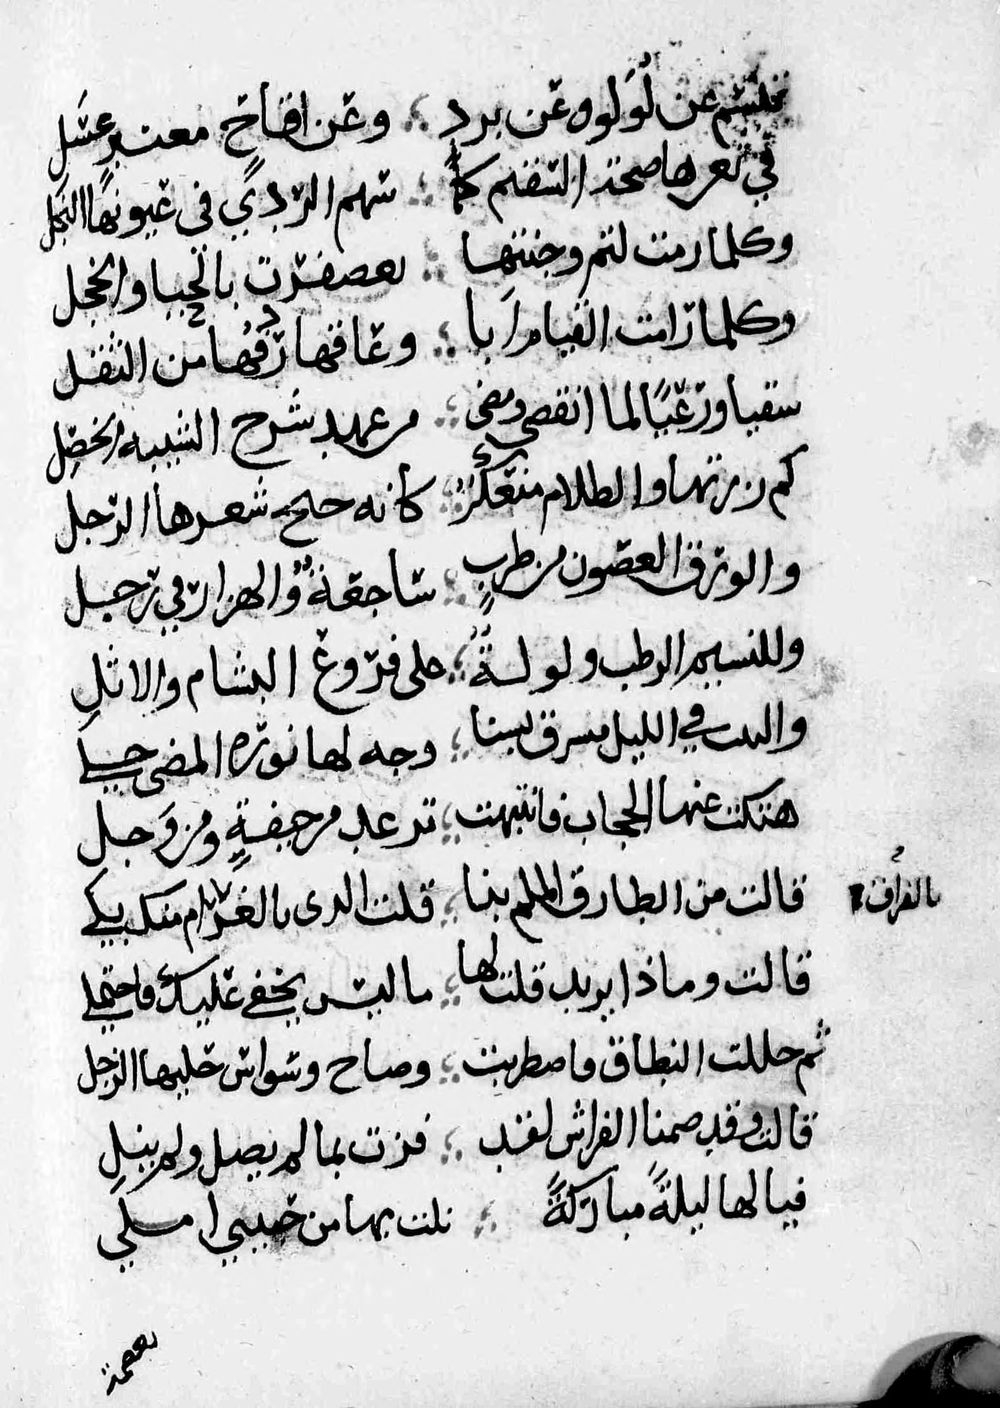 تبسم عن لؤلؤ وعن برد ؛ وعن اقاح معنبر عسل
في ثغرها صحة السقيم كما ؛ سهم الردي في عيونها النجل
وكلما رمت لثم وجنتها ؛ تعصفرت بالحيا والخجل
وكلما رامت القيام أبا ؛ وعاقها ردفها من الثقل
سقيا ورعيًا لما انقضى ومضى ؛ من عهد شرخ الشبيبه الخضل
كم زرتها والظلام معتكر ؛ كانه جنح شعرها الرجل
والورق في الغصون من طرب ؛ ساجعةٌ والهزار في زجل
وللنسيم الرطب ولولةٌ ؛ على فروع البشام والاثل
والبيت في الليل مشرق بسنا ؛ وجه لها نوره المضي جلي
هتكت عنها الحجاب فانتبهت ؛ ترعد من خيفةٍ ومن وجل
قالت من الطارق الملم بنا ؛ قلت الذى بالغرام منك بلي
بالفراق
قالت وماذا يريد قلت لها ؛ ما ليس يخفى عليك فاحتملي
ثم حللت النطاق فاضطربت ؛ وصاح وسواس حليها الزجل
قالت وقد ضمنا الفراش لقد ؛ فزت بما لم يصل ولم ينل
فيا لها ليلةً مباركةً ؛ نلت بها من حبيبي املي